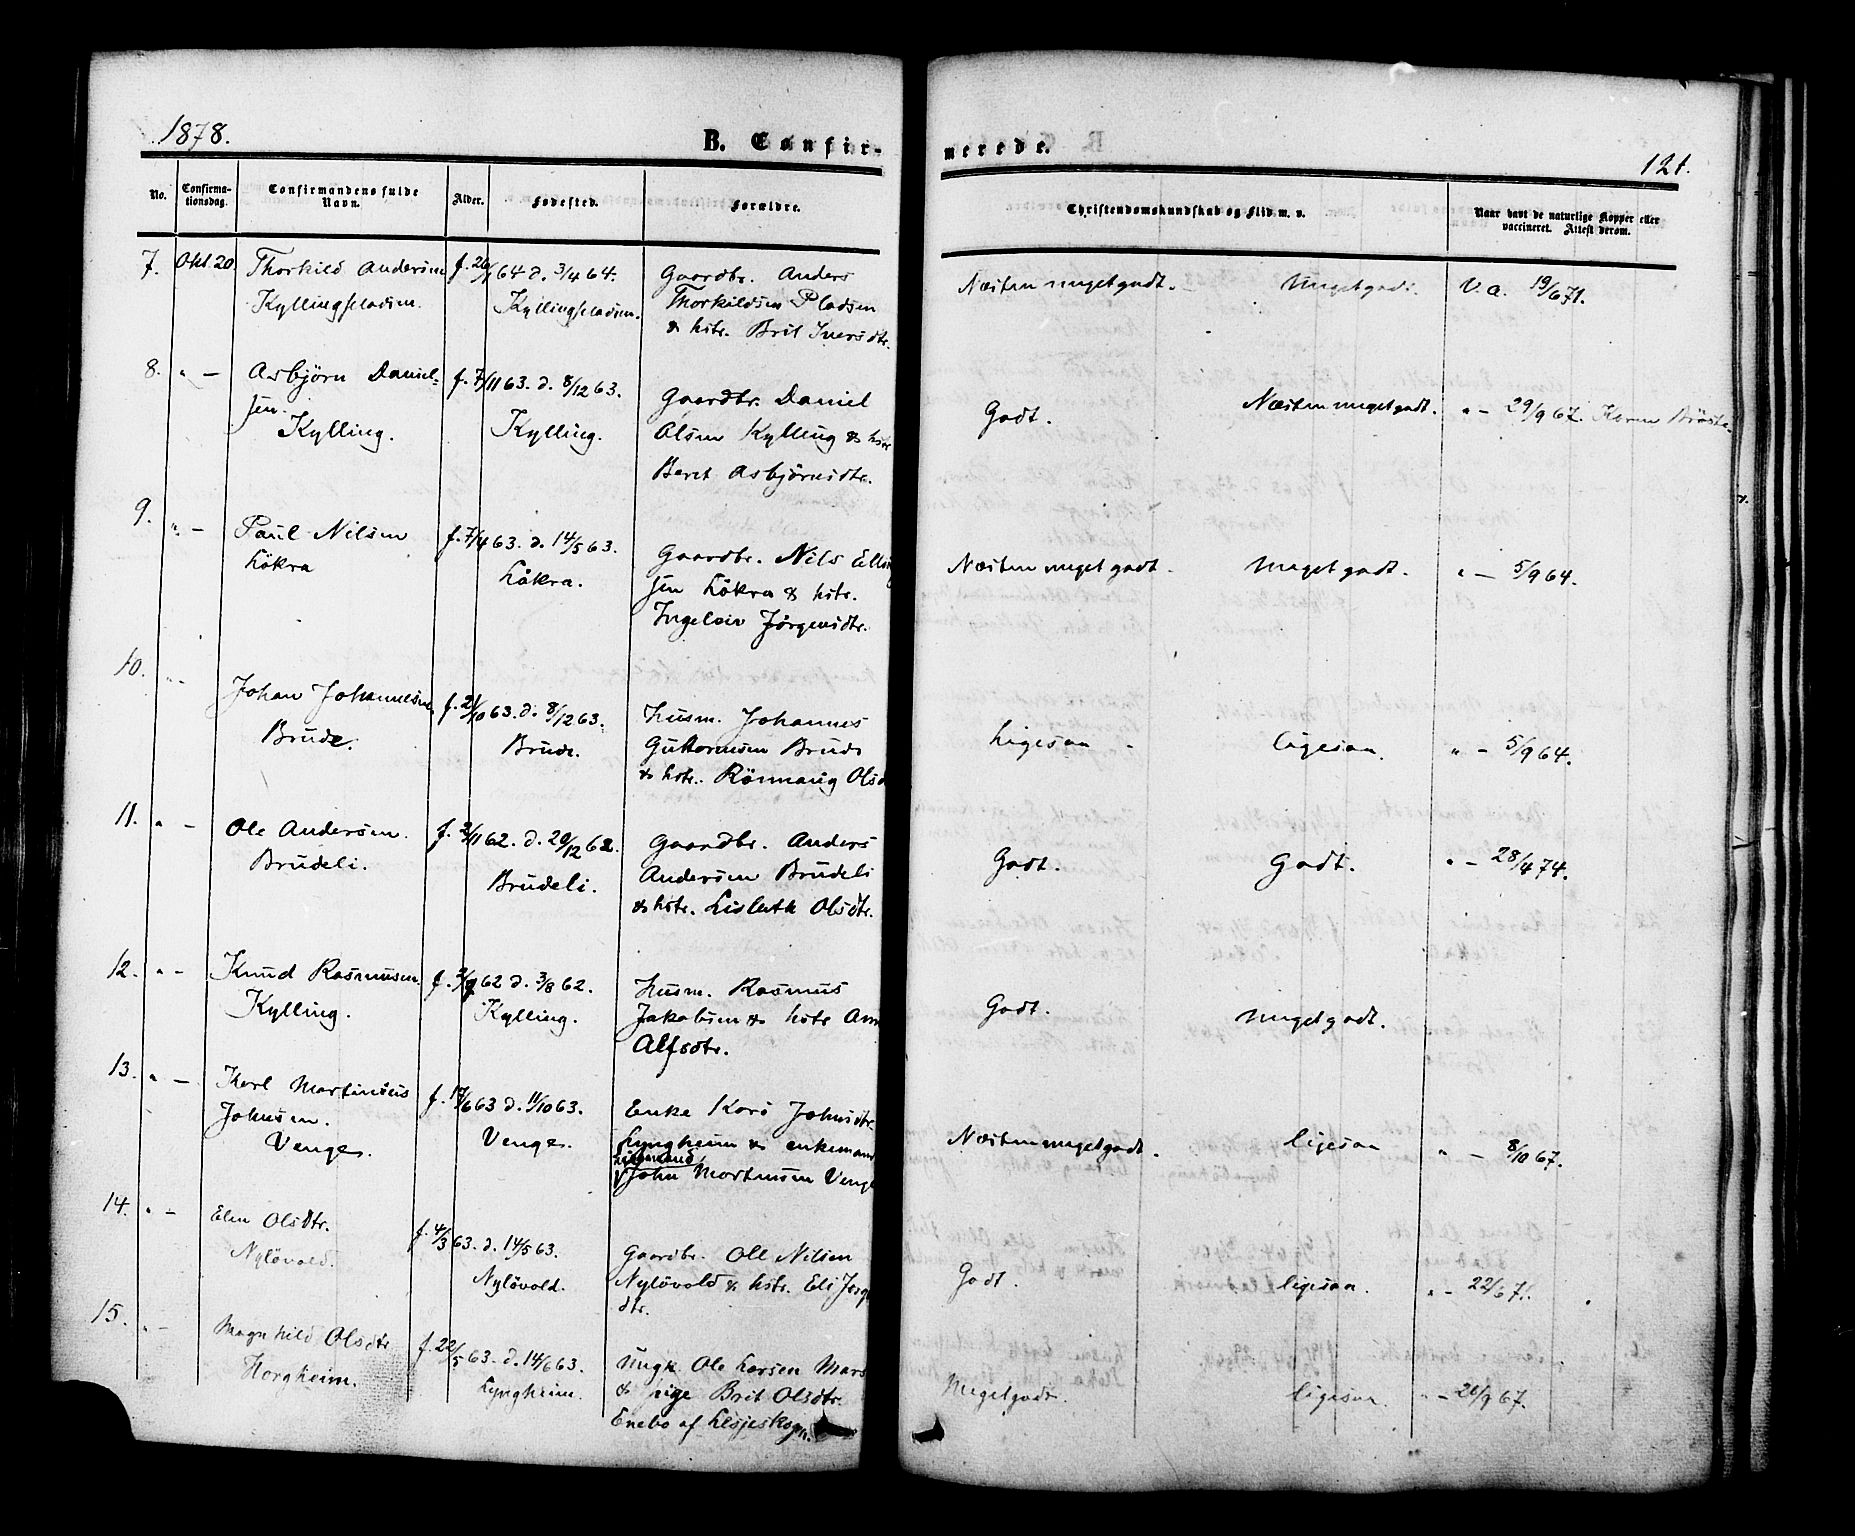 1878.
B. Confir-
merede.
121.
No.
Confirma-
tionsdag.
Confirmandens fulde
Navn.
Alder.
Fødested.
Forældre.
Christendomskundskab og Flid m. v.
Naar havt de naturlige Kopper eller
vaccineret. Attest derom.
7. Okt. 20. Thorkild Andersen f. 26/1 64 d. 3/4 64. Gaardbr. Anders
Kyllingpladsen. Kyllingpladsen. Thorkildsen Pladsen
& hstr. Brit Iversdtr.
Næsten meget godt. Meget godt. V. a. 19/6 71.
8. " — Asbjørn Daniel- f. 7/11 63. d. 8/12 63. Gaardbr. Daniel
sen Kylling. Kylling. Olsen Kylling & hstr
Beret Asbjørnsdtr.
Godt. Næsten meget godt. " — 29/9 67. Karen
9. " — Paul Nilsen f. 7/4 63. d. 14/5 63. Gaardbr. Nils Elling
Løkra Løkra. sen Løkra & hstr.
Ingeleiv Jørgensdtr.
Næsten meget godt. Meget godt. " — 5/9 64.
10. " - Johan Johannesen f. 21/10 63. d. 8/12 63. Husm. Johannes
Brude. Brude. Guttormsen Brude
& hstr. Rønnaug Olsd
Ligesaa ligesaa. " — 5/9 64.
11. " - Ole Andersen. f. 2/11 62. d. 20/12 62. Gaardbr. Anders
Brudeli. Brudeli. Andersen Brudeli
& hstr. Lisbeth Olsdtr.
Godt. Godt. " — 28/4 74.
12. " - Knud Rasmusen. 62 d. 3/8 62. Husm. Rasmus
Kylling. Kylling. Jakobsen & hstr Ann
Alfsdtr.
Godt. meget godt.
13. " — Karl Martinius f. 63 d. 11/10 63. Enke Kari Johnsdtr.
Johnsen. Venge. Lyngheim & enkemand
Venge. John Mortensen Venge
Næsten meget godt. ligesaa " — 8/10 67.
14. " - Elen Olsdtr. f. 4/3 63. d. 14/5 63. Gaardbr. Ole Nilsen
Nyløvold. Nyløvold. Nyløvold & hstr. Eli Jørg
dtr.
Godt. ligesaa. " - 22/6 71.
15. " - Magnhild Olsdtr f. 22/5 63. d. 14/6 63. Ungk. Ole Larsen Mars
Horgheim. Lyngheim. & pige Brit Olsdtr.
Enebo af Lesjeskogn.
Meget godt. ligesaa. " - 26/9 67.